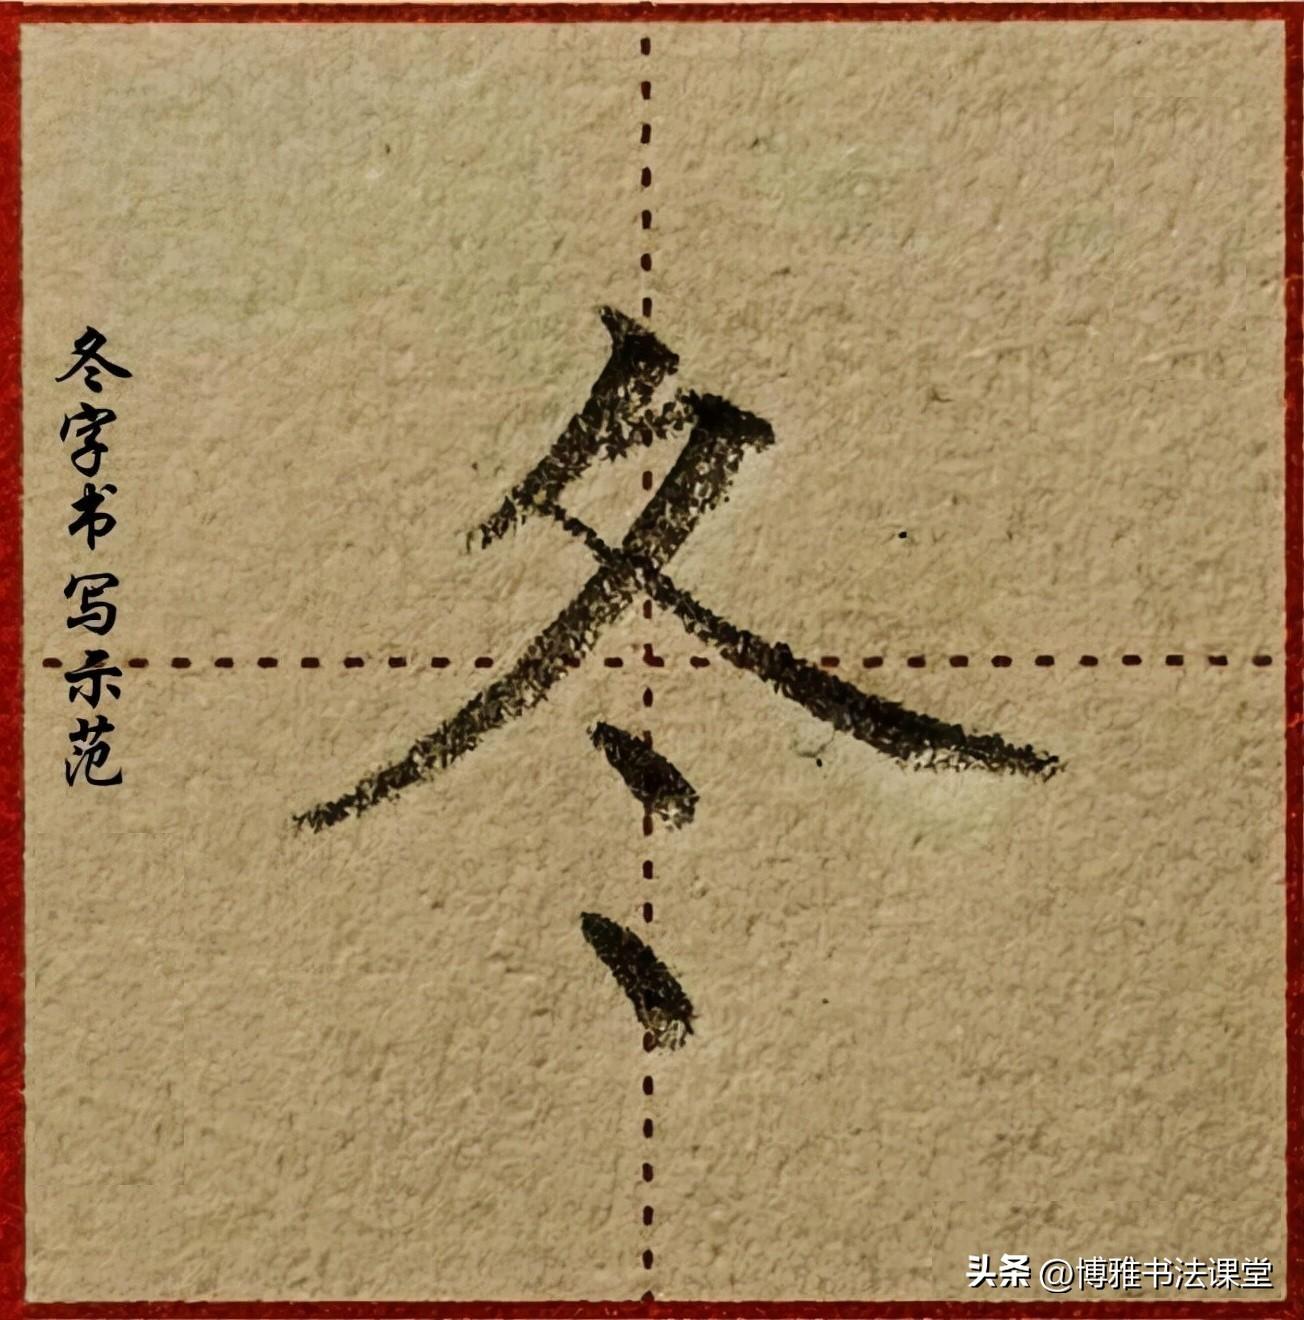 冬字书写示范
冬
头条 @博雅书法课堂